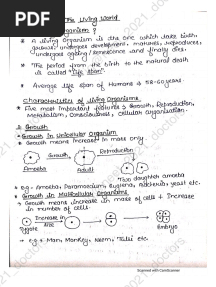 PDF
The Living World
Organism ?
* A living organism is the one which take birth,
growth undergoes development, matures, reproduces,
undergoes ageing / senescence and finally dies.
* "The period from the birth to the natural death
is called "life span".
* Average life span of Humans is 58-60 years.
Characteristics of Living Organisms.
* Five most important features : Growth, Reproduction,
Metabolism, Consciousness, Cellular organisation.
Growth
Growth in Unicellular Organism
* Growth means Increase in mass only
Growth
Reproduction
Amoeba
Adult
Two daughter amoeba
e.g. - Amoeba, Paramoecium, Euglena, Bacteria, yeast etc.
Growth in Multicellular Organisms
* Growth means, increase in mass of cells + Increase
in number of cells.
Increase in
size
Zygote
Embryo
→ e.g → Man, Monkey, Neem, Tulsi etc.
Scanned with CamScanner